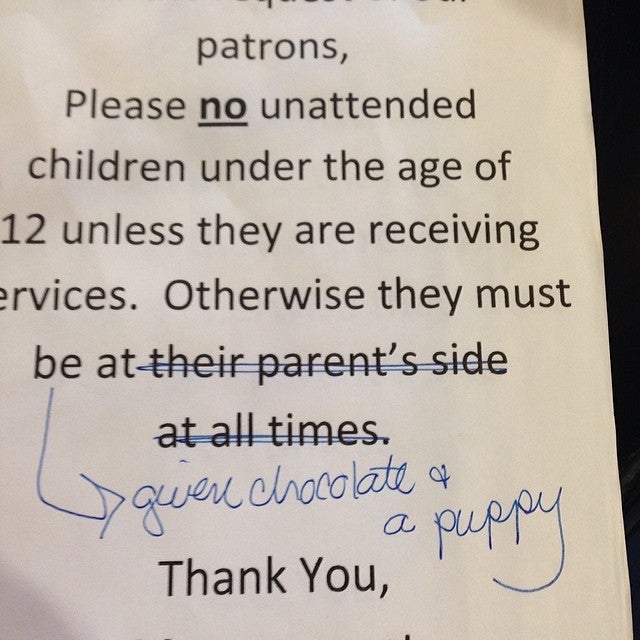 patrons,
Please no unattended
children under the age of
12 unless they are receiving
ervices. Otherwise they must
be at their parent's side
at all times.
given chocolate &
a puppy
Thank You,